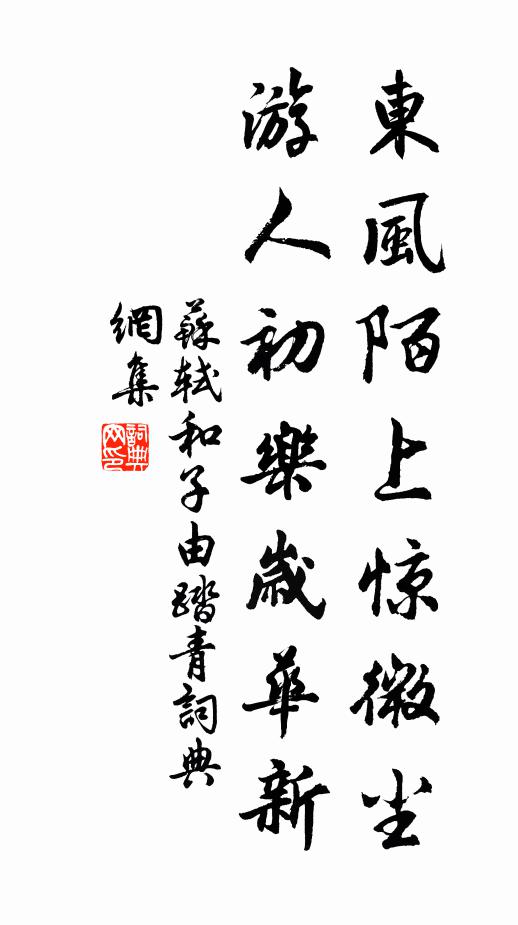 東風陌上惊微尘
游人初樂歲華新
蘇軾和子由踏青詞典
網集
詞典
网印